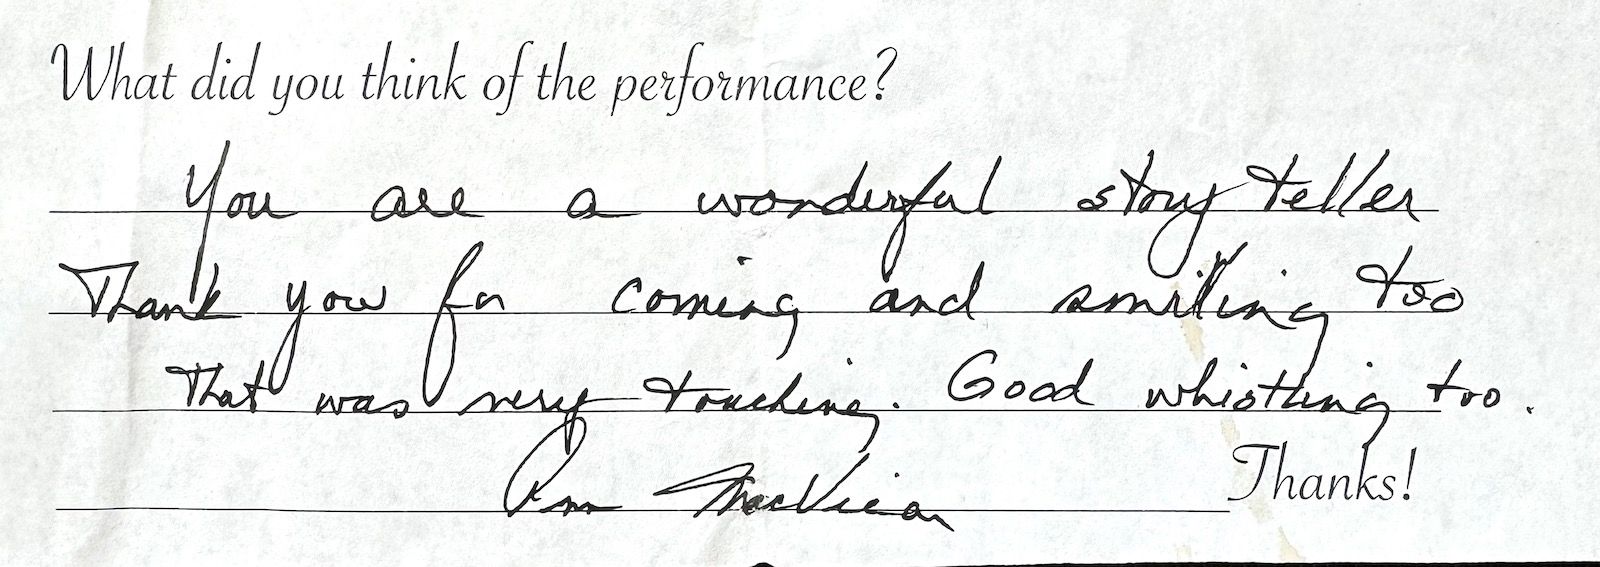 What did you think of the performance?
You are a wonderful story teller
Thank you for coming and smiling too
That was very touching. Good whistling too.
MacVicar
Thanks!